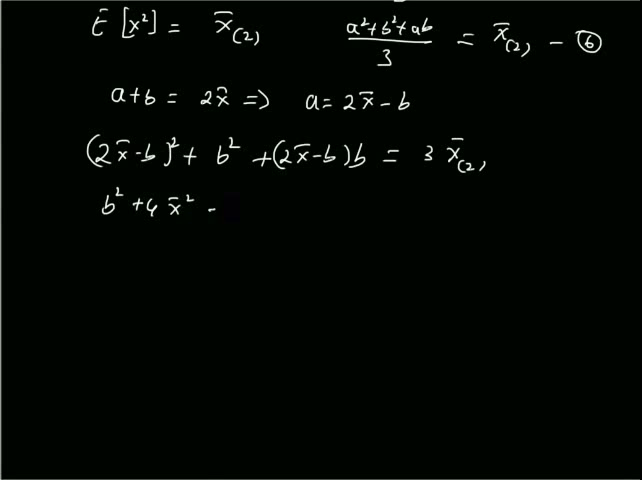 E [x²] = x̄₍₂₎    (a²+b²+ab)/3 = x̄₍₂₎ - ⑥
a+b = 2x̄ => a = 2x̄ - b
(2x̄-b)² + b² + (2x̄-b)b = 3 x̄₍₂₎
b² + 4x̄² -